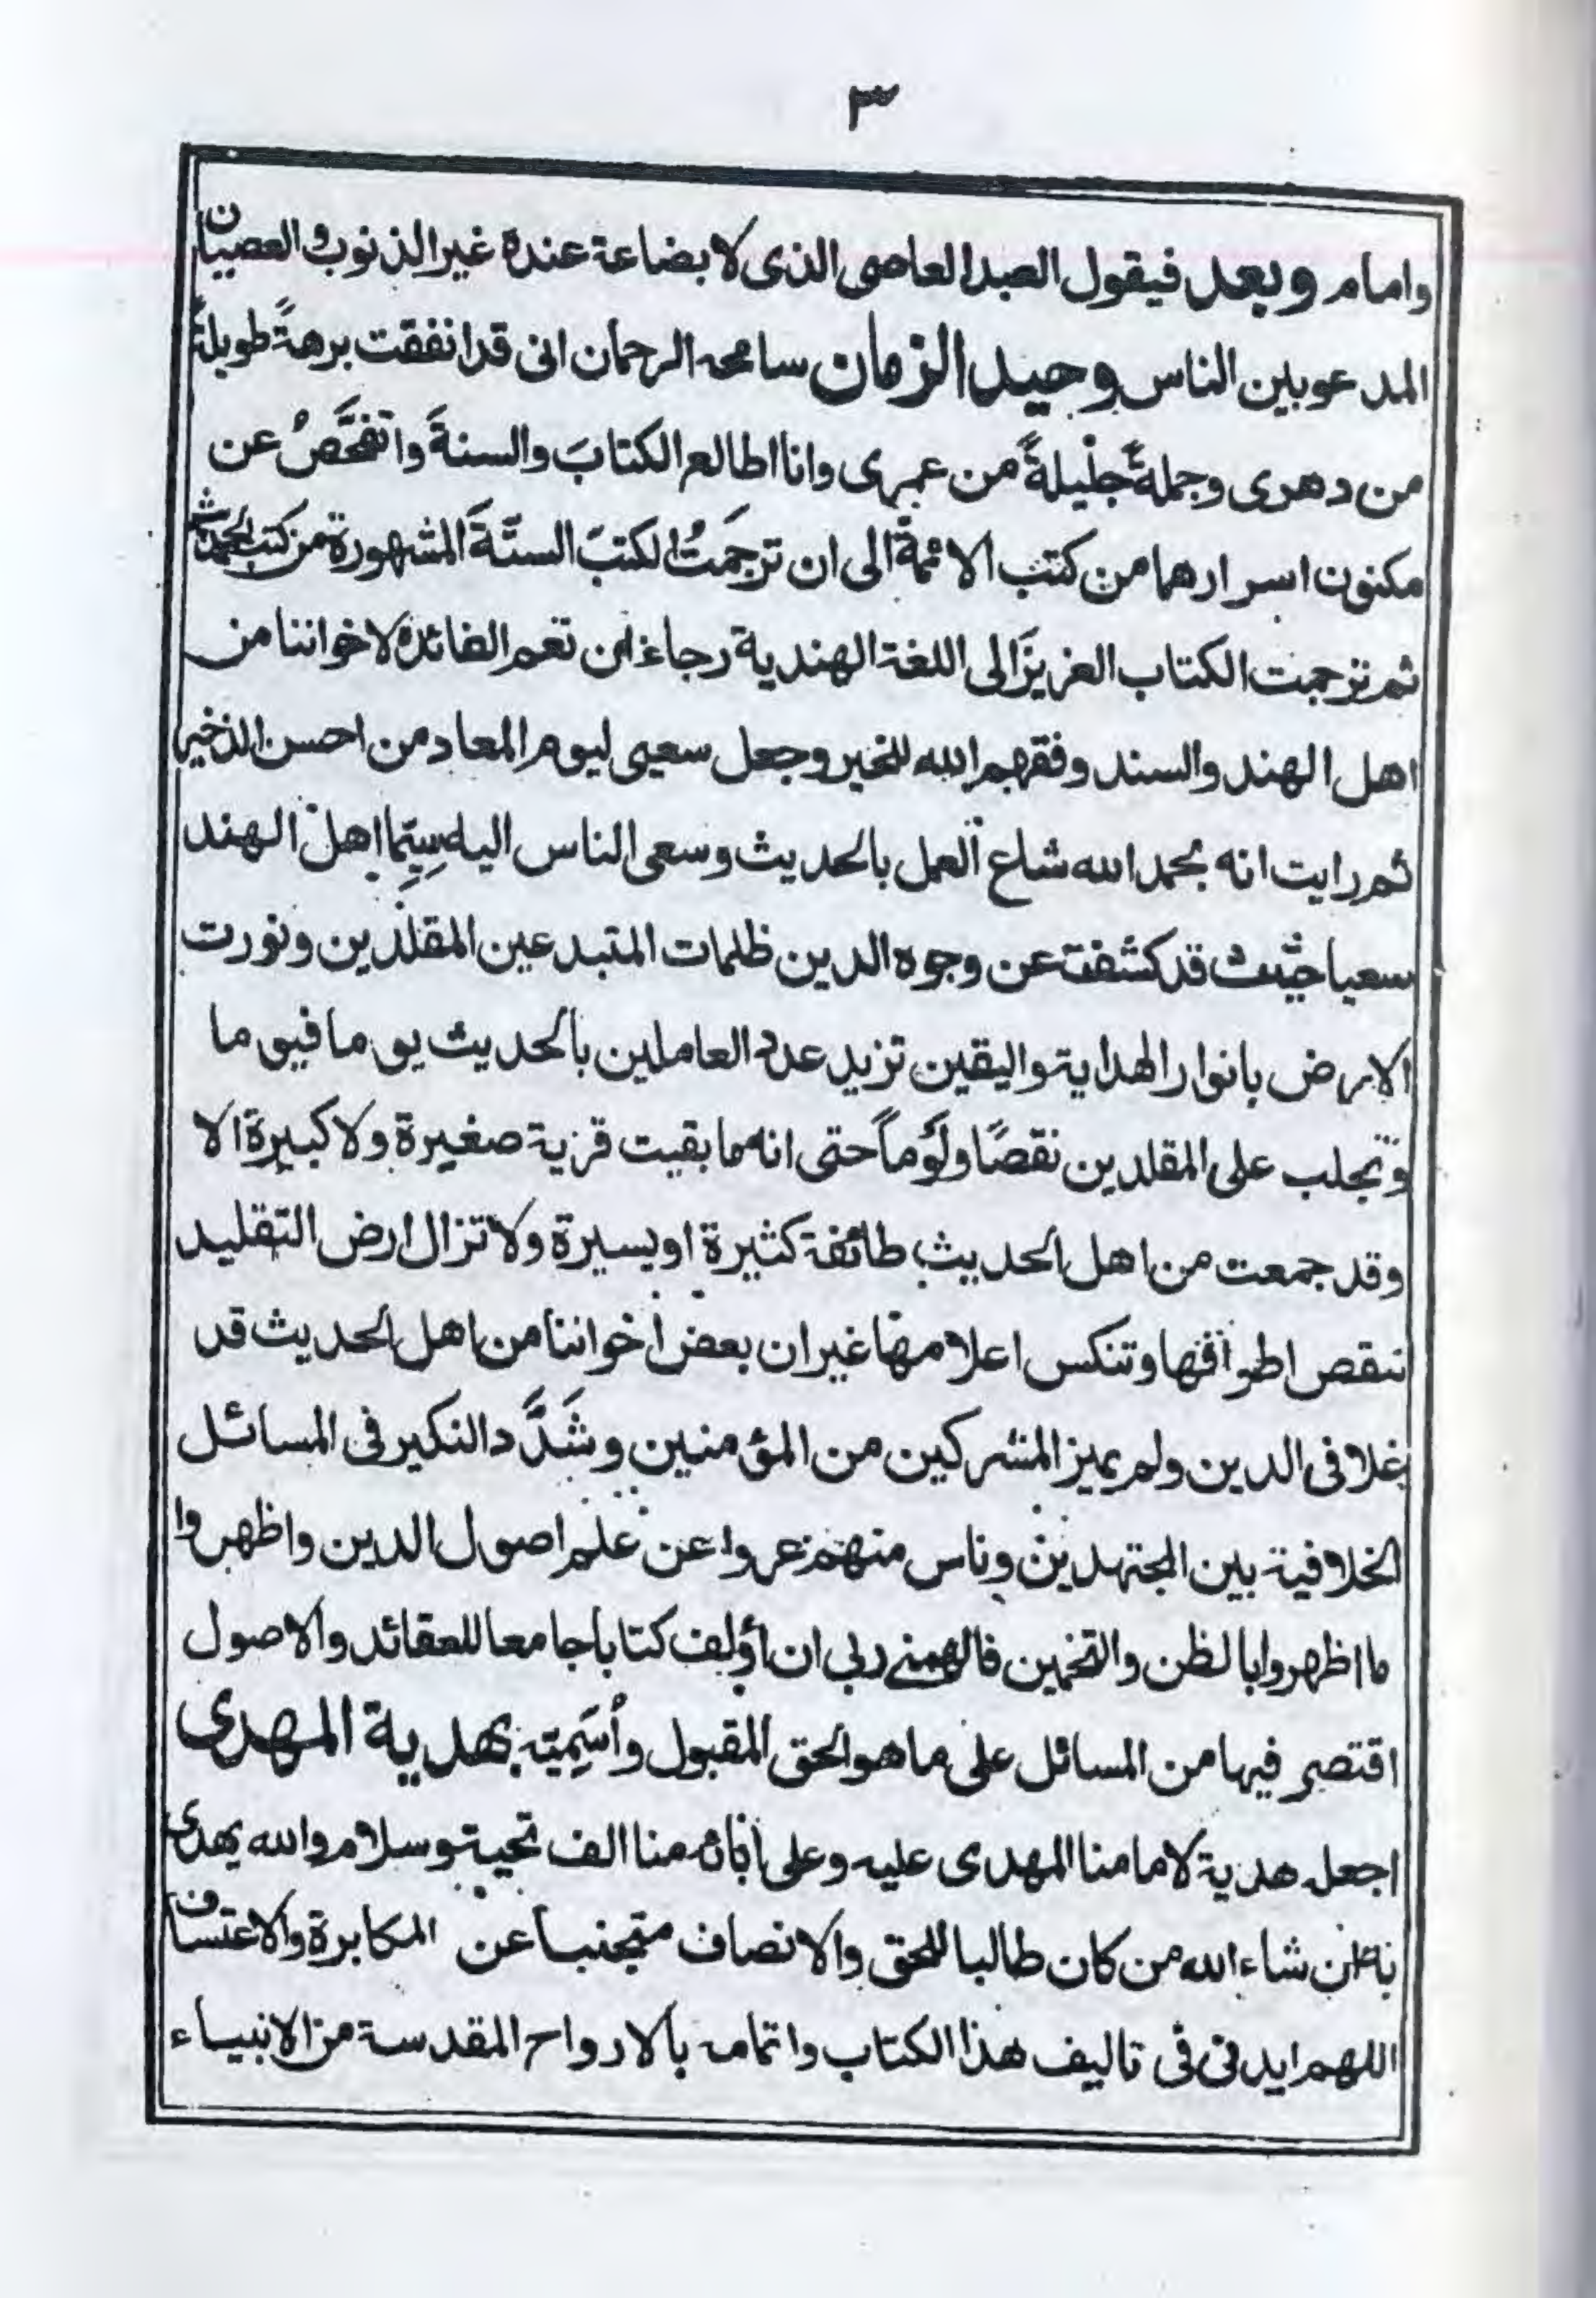 ٣
وامام وبعد فيقول العبد العاصى الذى لا بضاعة عنده غير الذنوب والعصيان
المدعو بين الناس وحيد الزمان سامحه الرحمان انى قد انفقت برهةً طويلةً
من دهرى وجملةً جليلةً من عمرى وانا اطالع الكتابَ والسنةَ واتفحَّصُ عن
مكنون اسرارهما من كتب الائمة الى ان ترجَمتُ الكتبَ الستّةَ المشهورة من كتب الحديث
ثم ترجمت الكتاب العزيزَ الى اللغة الهندية رجاء ان تعم الفائدة لاخواننا من
اهل الهند والسند وفقهم الله للخير وجعل سعيى ليوم المعاد من احسن الذخير
ثم رايت انه بحمد الله شاع العمل بالحديث وسعى الناس اليه سِيَّما اهل الهند
سعيا حثيث قد كشفت عن وجوه الدين ظلمات المتبدعين المقلدين ونورت
الارض بانوار الهداية واليقين تزيد عدد العاملين بالحديث يوما فيوما
وتجلب على المقلدين نقصًا ولَؤماً حتى انه ما بقيت قرية صغيرة ولا كبيرة الا
وقد جمعت من اهل الحديث طائفة كثيرة او يسيرة ولا تزال ارض التقليد
تنقص اطوافها وتنكس اعلامها غير ان بعض أخواننا من اهل الحديث قد
غلا فى الدين ولم يميز المشركين من المؤمنين وشَدَّد النكير فى المسائل
الخلافية بين المجتهدين وناس منهم عروا عن علم اصول الدين واظهروا
ما اظهروا بالظن والتخمين فالهمنے ربى ان أؤلف كتابا جامعا للعقائد والاصول
اقتصر فيها من المسائل على ما هو الحق المقبول وأُسَمِيته بهدية المهدى
اجعله هدية لامامنا المهدى عليه وعلى أبائه منا الف تحية وسلام والله يهدى
به ان شاء الله من كان طالبا للحق والانصاف متجنبا عن المكابرة والاعتساف
اللهم ايدنى فى تاليف هذا الكتاب واتمامه بالارواح المقدسة من الانبياء